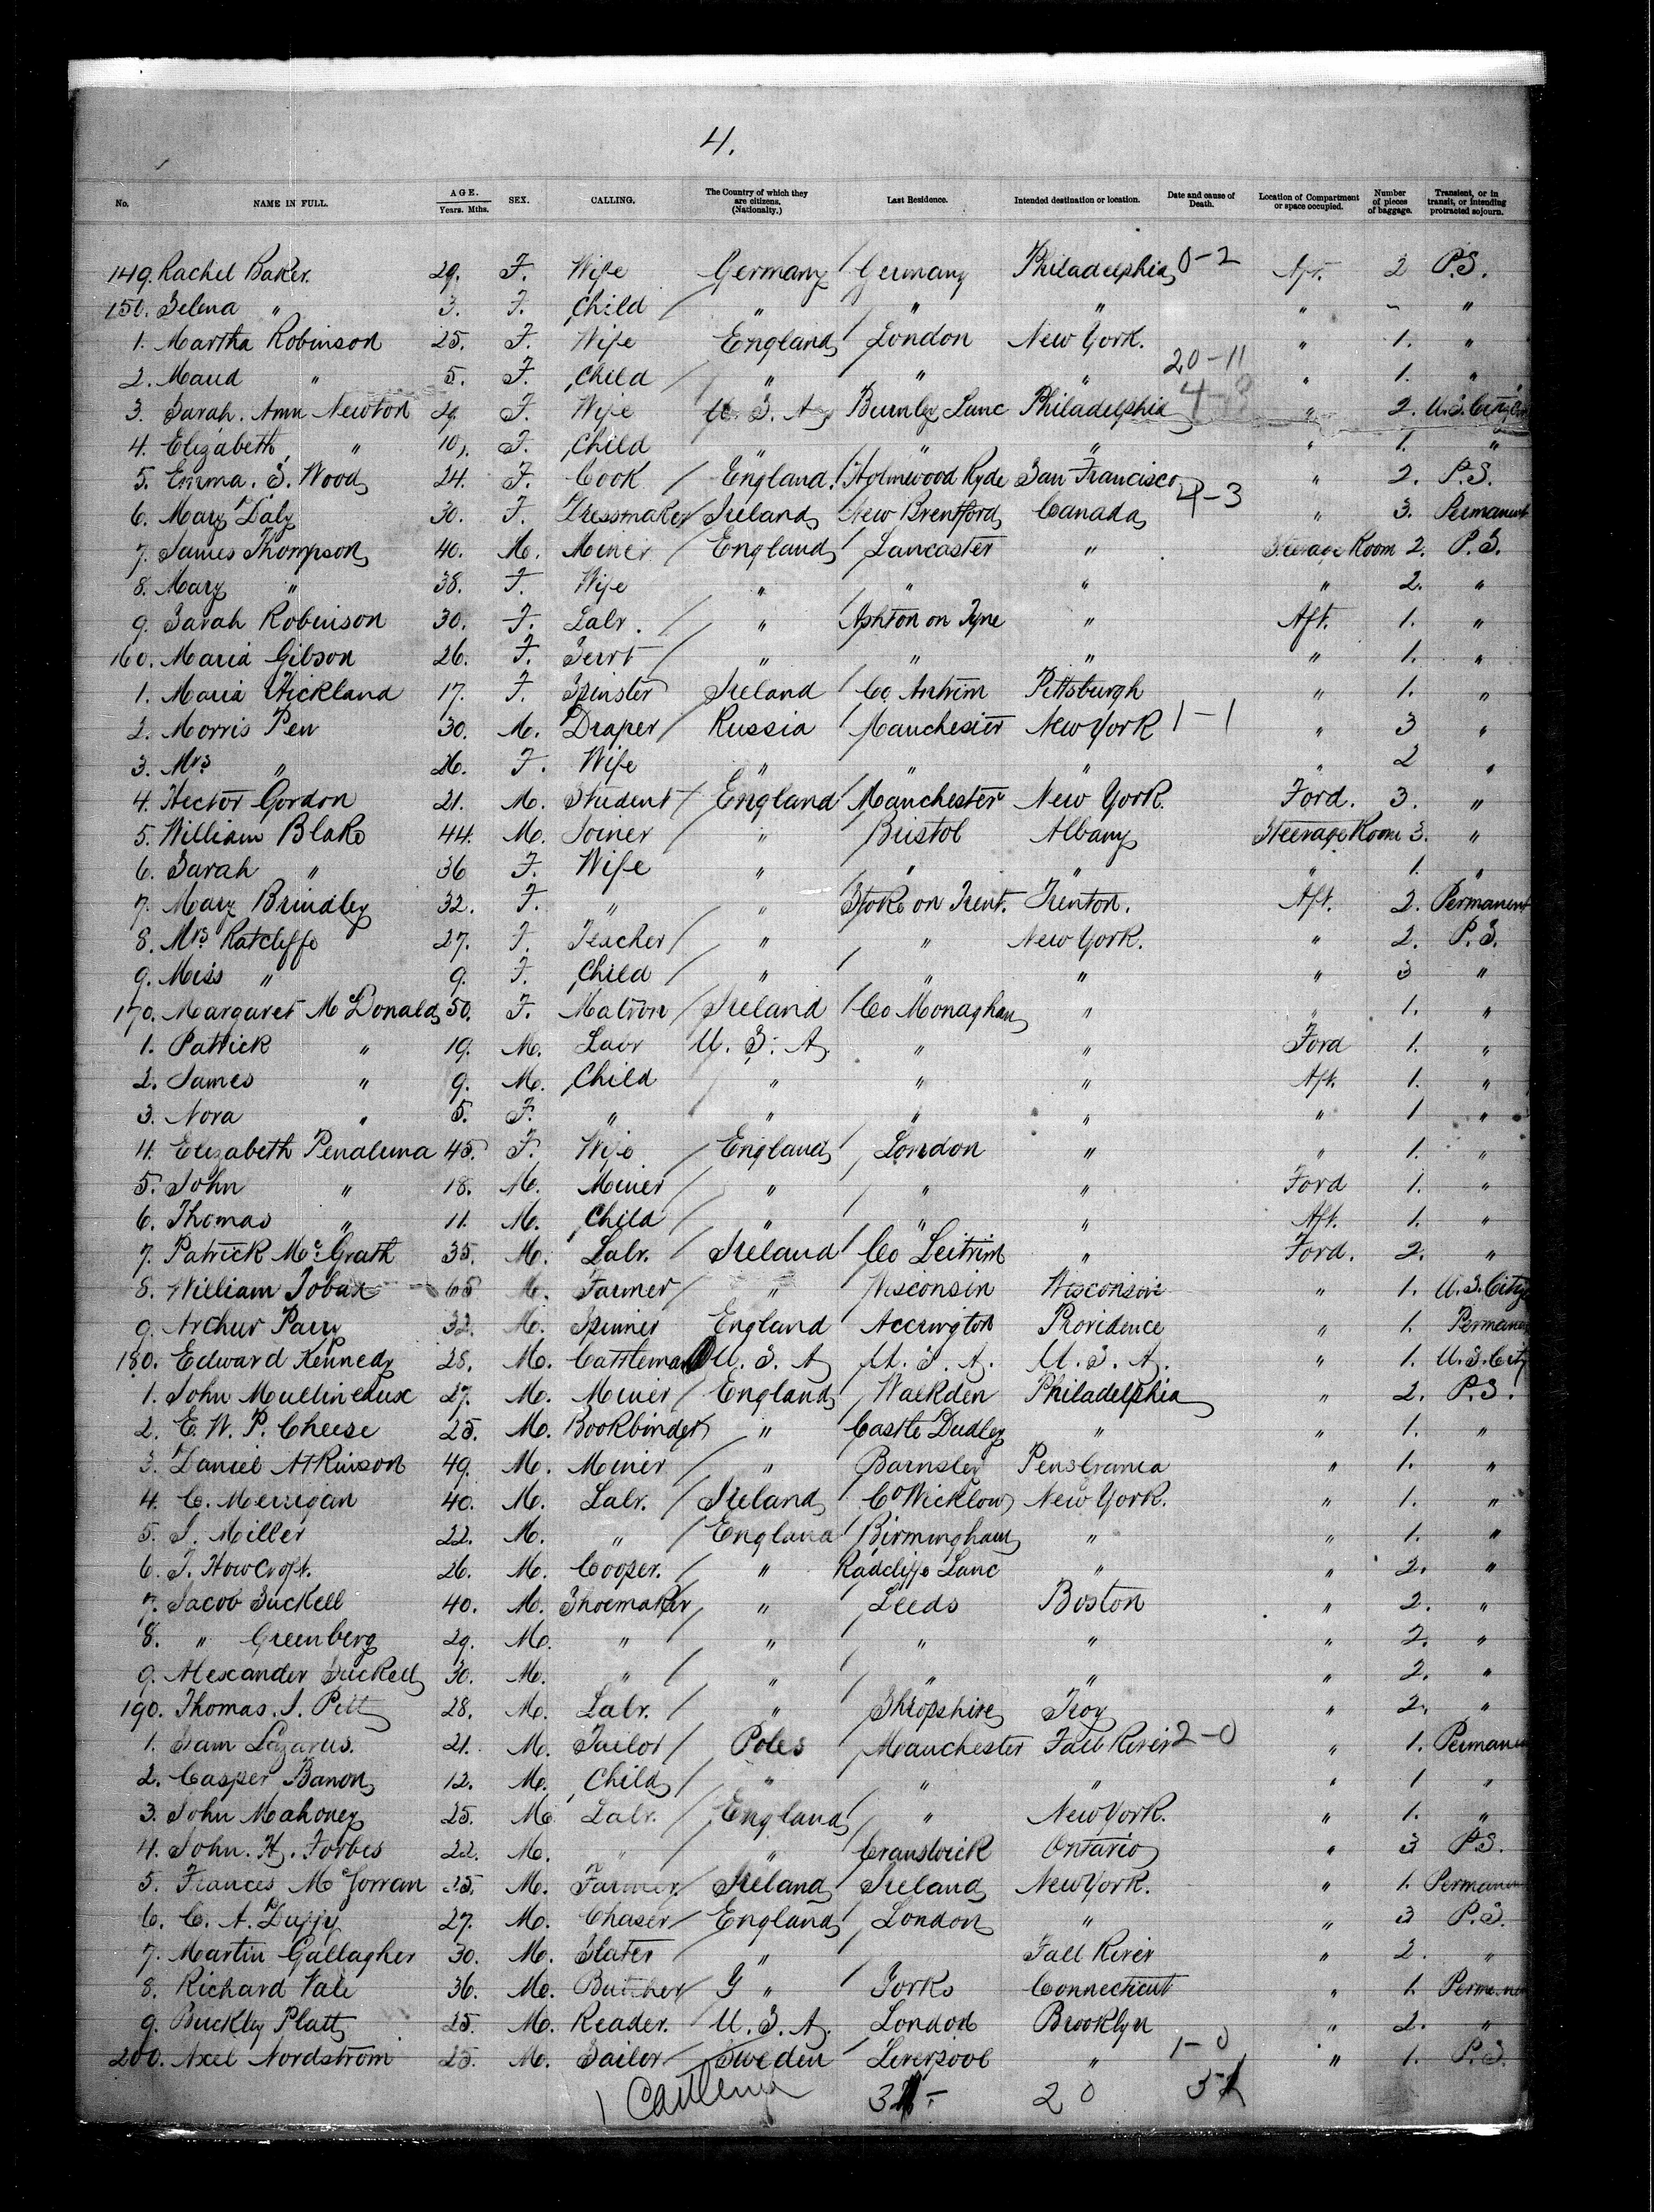 4.
No. NAME IN FULL. AGE. Years. Mths. SEX. CALLING. The Country of which they are citizens. (Nationalty.) Last Residence. Intended destination or location. Date and cause of Death. Location of Compartment or space occupied. Number of pieces of baggage. Transient, or in transit, or intending protracted sojourn.
149. Rachel Baker. 29. F. Wife Germany Germany Philadelphia 0-2 Aft. 2 P.S.
150. Selena " 3. F. Child " " " " ~ "
1. Martha Robinson 25. F. Wife England London New York. " 1. "
20-11
2. Maud " 5. F. Child " " " " 1. "
3. Sarah. Ann Newton 29. F. Wife U.S.A. Burnley Lanc Philadelphia " 2. U.S.
4. Elizabeth " 10. F. Child " " " " 1. "
5. Emma. S. Wood 24. F. Cook England. Holmwood Ryde San Francisco " 2. P.S.
6. Mary Daly 30. F. Dressmaker Ireland New Brentford Canada 4-3 " 3. Permanent
7. James Thompson 40. M. Miner England Lancaster " Steerage Room 2. P.S.
8. Mary " 38. F. Wife " " " " 2. "
9. Sarah Robinson 30. F. Labr. " Ashton on Tyne " Aft. 1. "
160. Maria Gibson 26. F. Servt " " " " 1. "
1. Maria Hickland 17. F. Spinster Ireland Co. Antrim Pittsburgh " 1. "
2. Morris Pen 30. M. Draper Russia Manchester New York 1-1 " 3 "
3. Mrs " 26. F. Wife " " " " 2 "
4. Hector Gordon 21. M. Student England Manchester New York. Ford. 3. "
5. William Blake 44. M. Joiner " Bristol Albany Steerage Room 3. "
6. Sarah " 36 F. Wife " " " " 1. "
7. Mary Brindley 32. F. " " Stoke on Trent. Trenton. Aft. 2. Permanent
8. Mrs Ratcliffe 27. F. Teacher " " New York. " 2. P.S.
9. Miss " 9. F. Child " " " " 3 "
170. Margaret McDonald 50. F. Matron Ireland Co Monaghan " " 1. "
1. Patrick " 19. M. Labr U.S.A. " " Ford 1. "
2. James " 9. M. Child " " " Aft. 1. "
3. Nora " 5. F. " " " " " 1 "
4. Elizabeth Penaluna 45. F. Wife England London " " 1. "
5. John " 18. M. Miner " " " Ford 1. "
6. Thomas " 11. M. Child " " " Aft. 1. "
7. Patrick McGrath 35. M. Labr. Ireland Co Leitrim " Ford. 2. "
8. William 65 M. Farmer " Wisconsin Wisconsin " 1. U.S. Citiz
9. Arthur Parry 32. M. Spinner England Accrington Providence " 1. Permanen
180. Edward Kennedy 28. M. Cattleman U.S.A U.S.A. U.S.A. " 1. U.S. Cit
1. John Mullineaux 27. M. Miner England Walkden Philadelphia " 2. P.S.
2. E. W. P. Cheese 25. M. Bookbinder " Castle Dudley " " 1. "
3. Daniel Atkinson 49. M. Miner " Barnsley " 1. "
4. C. Merrigan 40. M. Labr. Ireland Co Wicklow New York. " 1. "
5. J. Miller 22. M. " England Birmingham " " 1. "
6. T. Howcroft. 26. M. Cooper. " Radcliffe Lanc " " 2. "
7. Jacob Suckell 40. M. Shoemaker " Leeds Boston " 2. "
8. " Greenberg 29. M. " " " " " 2. "
9. Alexander Suckell 30. M. " " " " " 2. "
190. Thomas. J. Pitt 28. M. Labr. " Shropshire Troy " 2. "
1. Sam Lazarus. 21. M. Tailor Poles Manchester Fall River 2-0 " 1. Permanen
2. Casper Banon 12. M. Child " " " " 1 "
3. John Mahoney 25. M. Labr. England " New York. " 1. "
4. John. H. Forbes 22. M. " " Cranswick Ontario " 3 P.S.
5. Frances 25. M. Farmer. Ireland Ireland New York. " 1. Permanen
6. C. A. Duffy 27. M. Chaser England London " " 3 P.S.
7. Martin Gallagher 30. M. Slater " Fall River " 2. "
8. Richard Vale 36. M. Butcher " Yorks Connecticut " 1. Permanen
9. Buckley Platt 25. M. Reader. U.S.A. London Brooklyn " 2. "
200. Axel Nordstrom 25. M. Sailor Sweden Liverpool " 1-0 " 1. P.S.
1 20